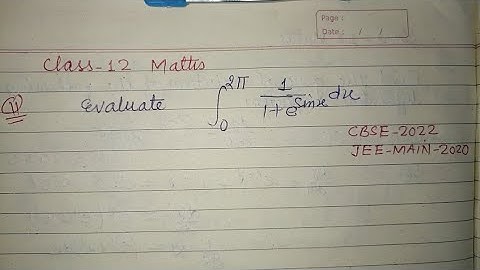 Page :
Date : / /
Class-12 Maths
Q Evaluate ∫₀^2π 1/(1+e^sinx) dx
CBSE-2022
JEE-MAIN-2020